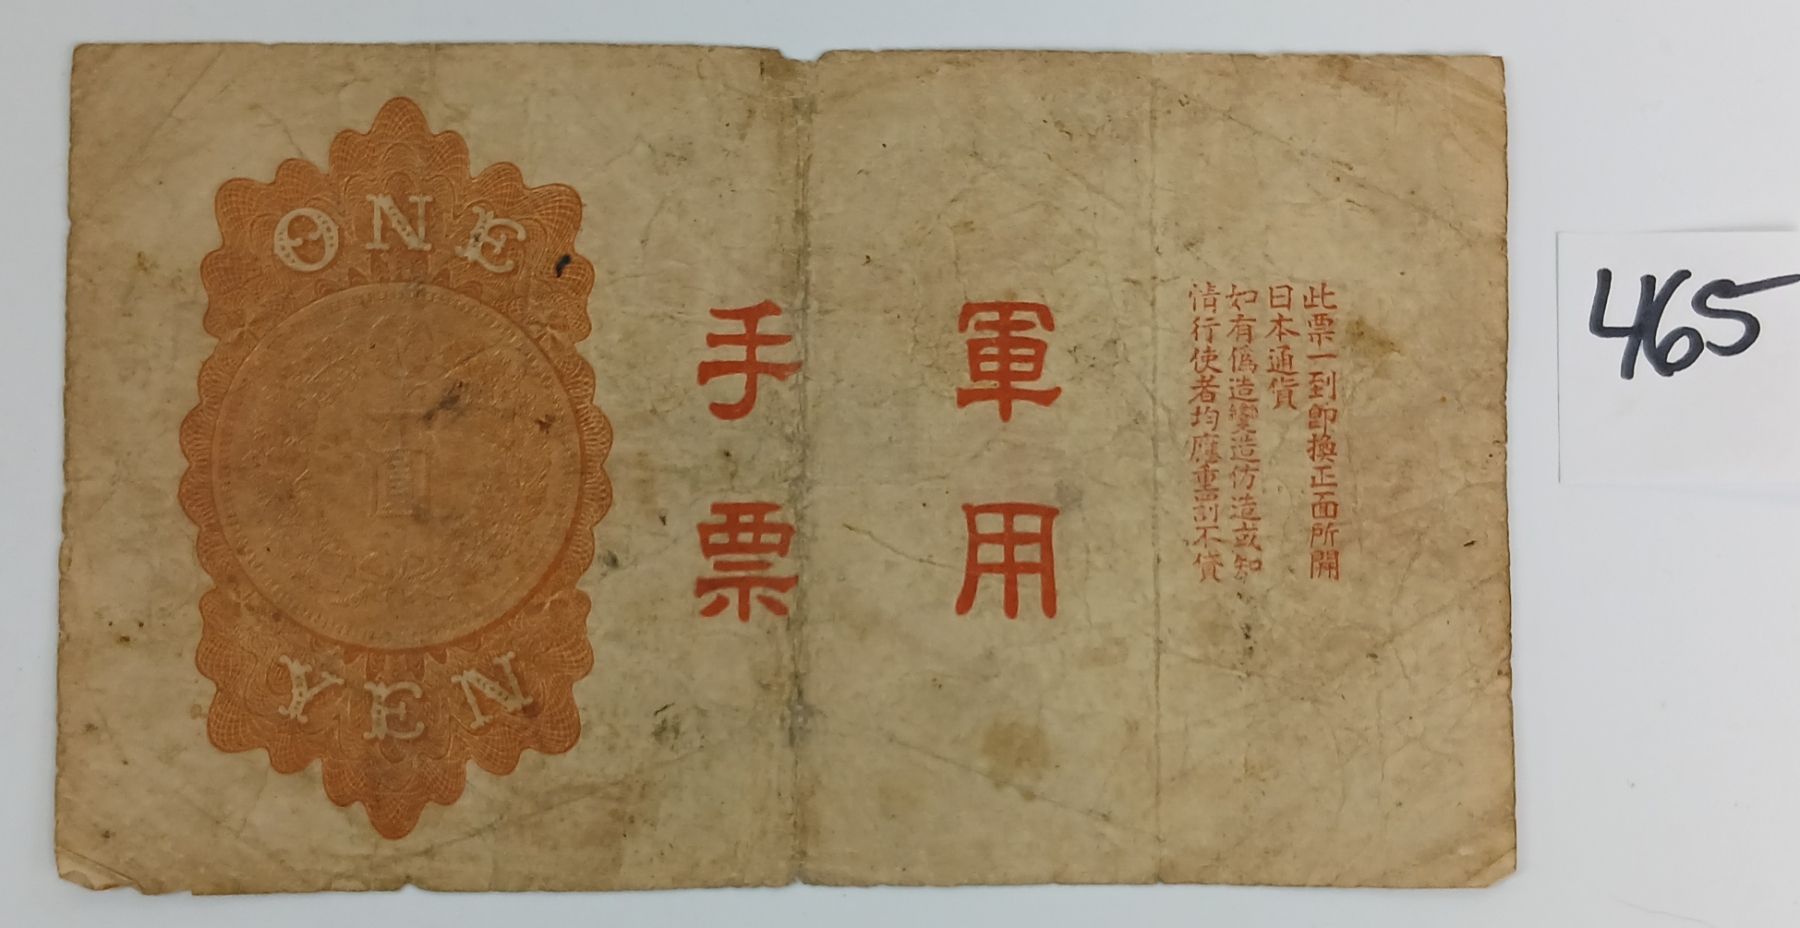 ONE
一圓
YEN
軍用
手票
此票一到即換正面所開
日本通貨
如有偽造變造仿造或知
情行使者均應重罰不貸
465